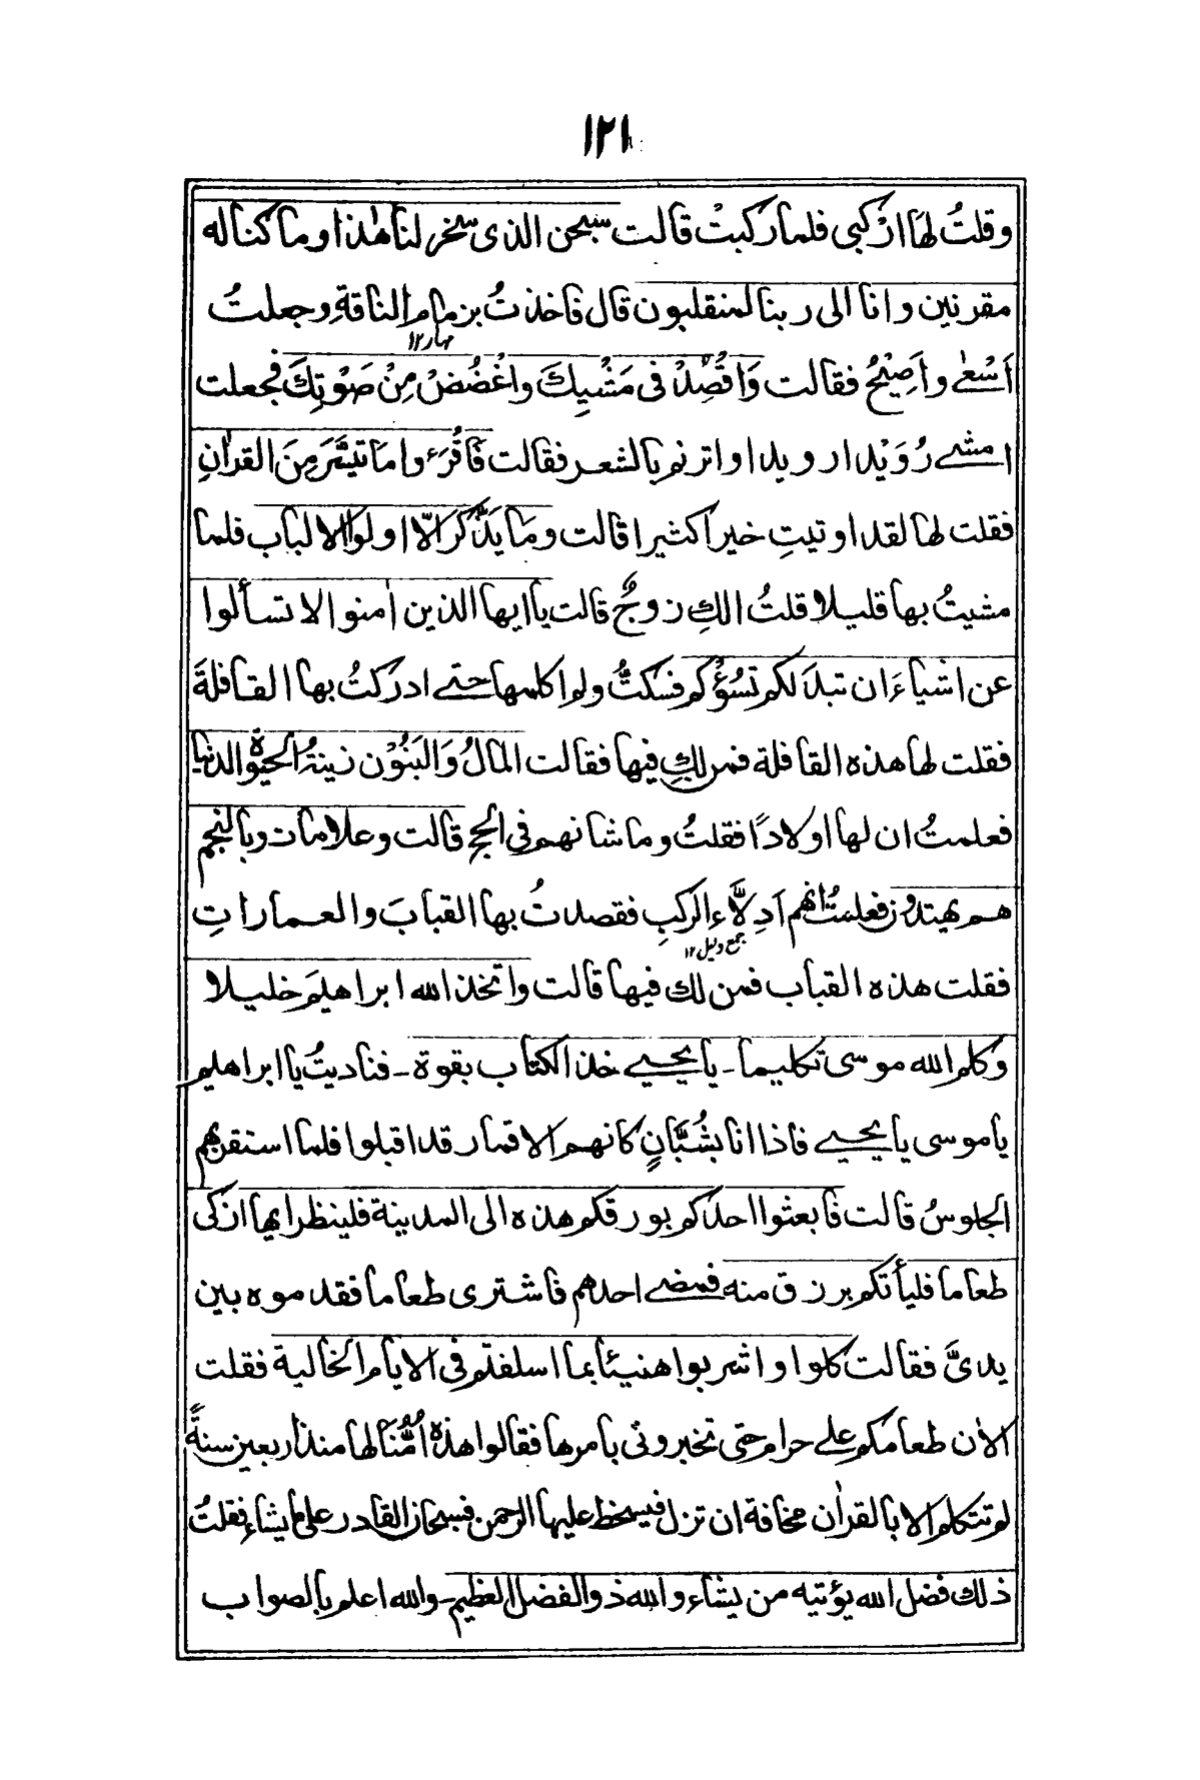 ١٢١
وقلتُ لها ارْكبى فلما ركبتْ قالت سبحن الذى سخر لنا هٰذا وما كنا له
مقرنين وانا الى ربنا لمنقلبون قال فاخذتُ بزمام الناقةِ وجعلتُ
مهار ١٢
اَسْعٰى واَصِيْحُ فقالت وَاقْصِدْ فى مَشْيِكَ واغْضُضْ مِنْ صَوْتِكَ فجعلت
امشى رُوَيْدا رويدا واترنم بالشعر فقالت فَاقْرَءوا مَا تَيَسَّرَ مِنَ القراٰنِ
فقلت لها لقد اوتيتِ خيرا كثيرا قالت ومَا يَذَّكَّرُ الّا اولوا الالباب فلما
مشيتُ بها قليلا قلتُ الكِ زوجٌ قالت يا ايها الذين اٰمنوا لا تسألوا
عن اشياءَ ان تبدَ لكم تسُؤْكم فسكتُّ ولم اكلمها حتى ادركتُ بها القافلةَ
فقلت لها هذه القافلة فمن لكِ فيها فقالت المالُ وَالبَنُوْن زينةُ الحيٰوة الدنيا
فعلمتُ ان لها اولادًا فقلتُ وما شانهم فى الحج قالت وعلامات وبالنجم
هم يهتدون فعلمتُ انهم اَدِلَّاءِ الركبِ فقصدتُ بها القبابَ والعماراتِ
جمع دليل ١٢
فقلت هذه القباب فمن لك فيها قالت واتخذ الله ابراهيمَ خليلا
وكلم الله موسى تكليما - يا يحيى خذ الكتاب بقوة - فناديتُ يا ابراهيم
يا موسى يا يحيى فاذا انا بشُبَّانٍ كانهم الاقمار قد اقبلوا فلما استقر بهم
الجلوسُ قالت فابعثوا احدكم بورقكم هذه الى المدينة فلينظر ايها ازكى
طعاما فليأتكم برزق منه فمضى احدهم فاشترى طعاما فقدموه بين
يدىَّ فقالت كلوا واشربوا هنيئا بما اسلفتم فى الايام الخالية فقلت
الاٰن طعامكم على حرام حتى تخبرونى بامرها فقالوا هذه اُمُّنَا لها منذ اربعين سنةً
لم تتكلم الا بالقراٰن مخافة ان تزل فيسخط عليها الرحمن فسبحان القادر على ما يشاء فقلتُ
ذلك فضل الله يؤتيه من يشاء والله ذو الفضل العظيم - والله اعلم بالصواب